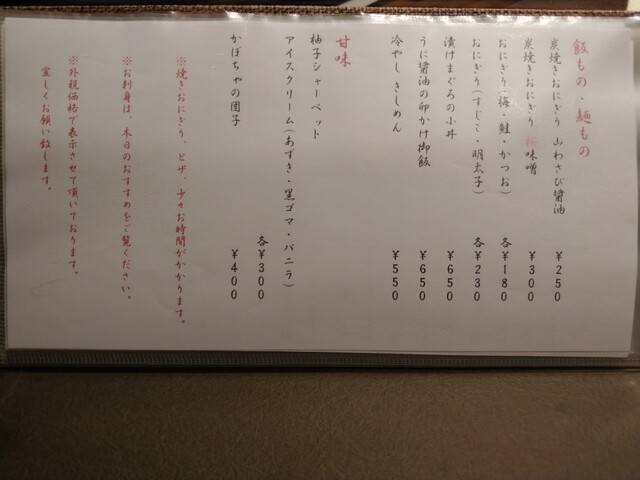 飯もの・麺もの
炭焼きおにぎり 山わさび醤油 ¥250
炭焼きおにぎり 味噌 ¥300
おにぎり(梅・鮭・かつお) 各¥180
おにぎり(すじこ・明太子) 各¥230
漬けまぐろの小丼 ¥650
うに醤油の卵かけ御飯 ¥650
冷やしきしめん ¥550
甘味
柚子シャーベット
アイスクリーム(あずき・黒ゴマ・バニラ)
各¥300
かぼちゃの団子 ¥400
※焼きおにぎり、ピザ、少々お時間がかかります。
※お刺身は、本日のおすすめをご覧ください。
※外税価格で表示させて頂いております。
宜しくお願い致します。